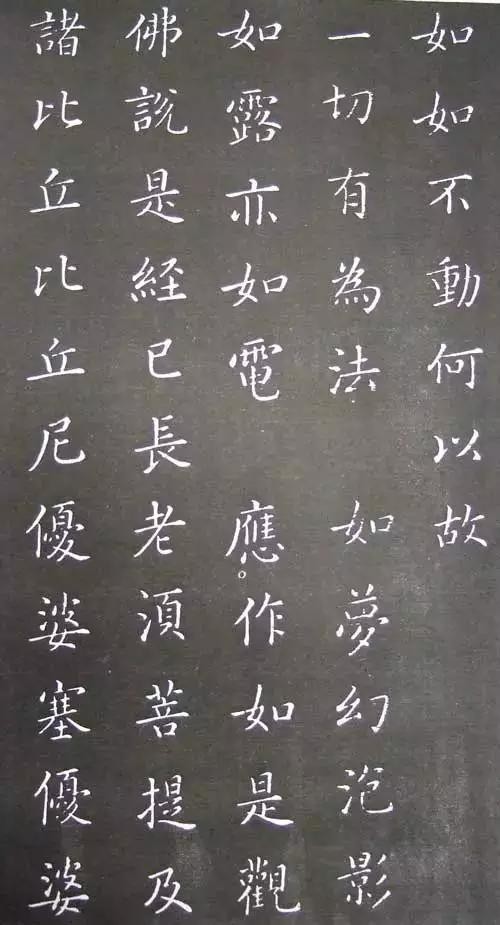 如如不動何以故
一切有為法 如夢幻泡影
如露亦如電 應。作如是觀
佛說是經已長老須菩提及
諸比丘比丘尼優婆塞優婆